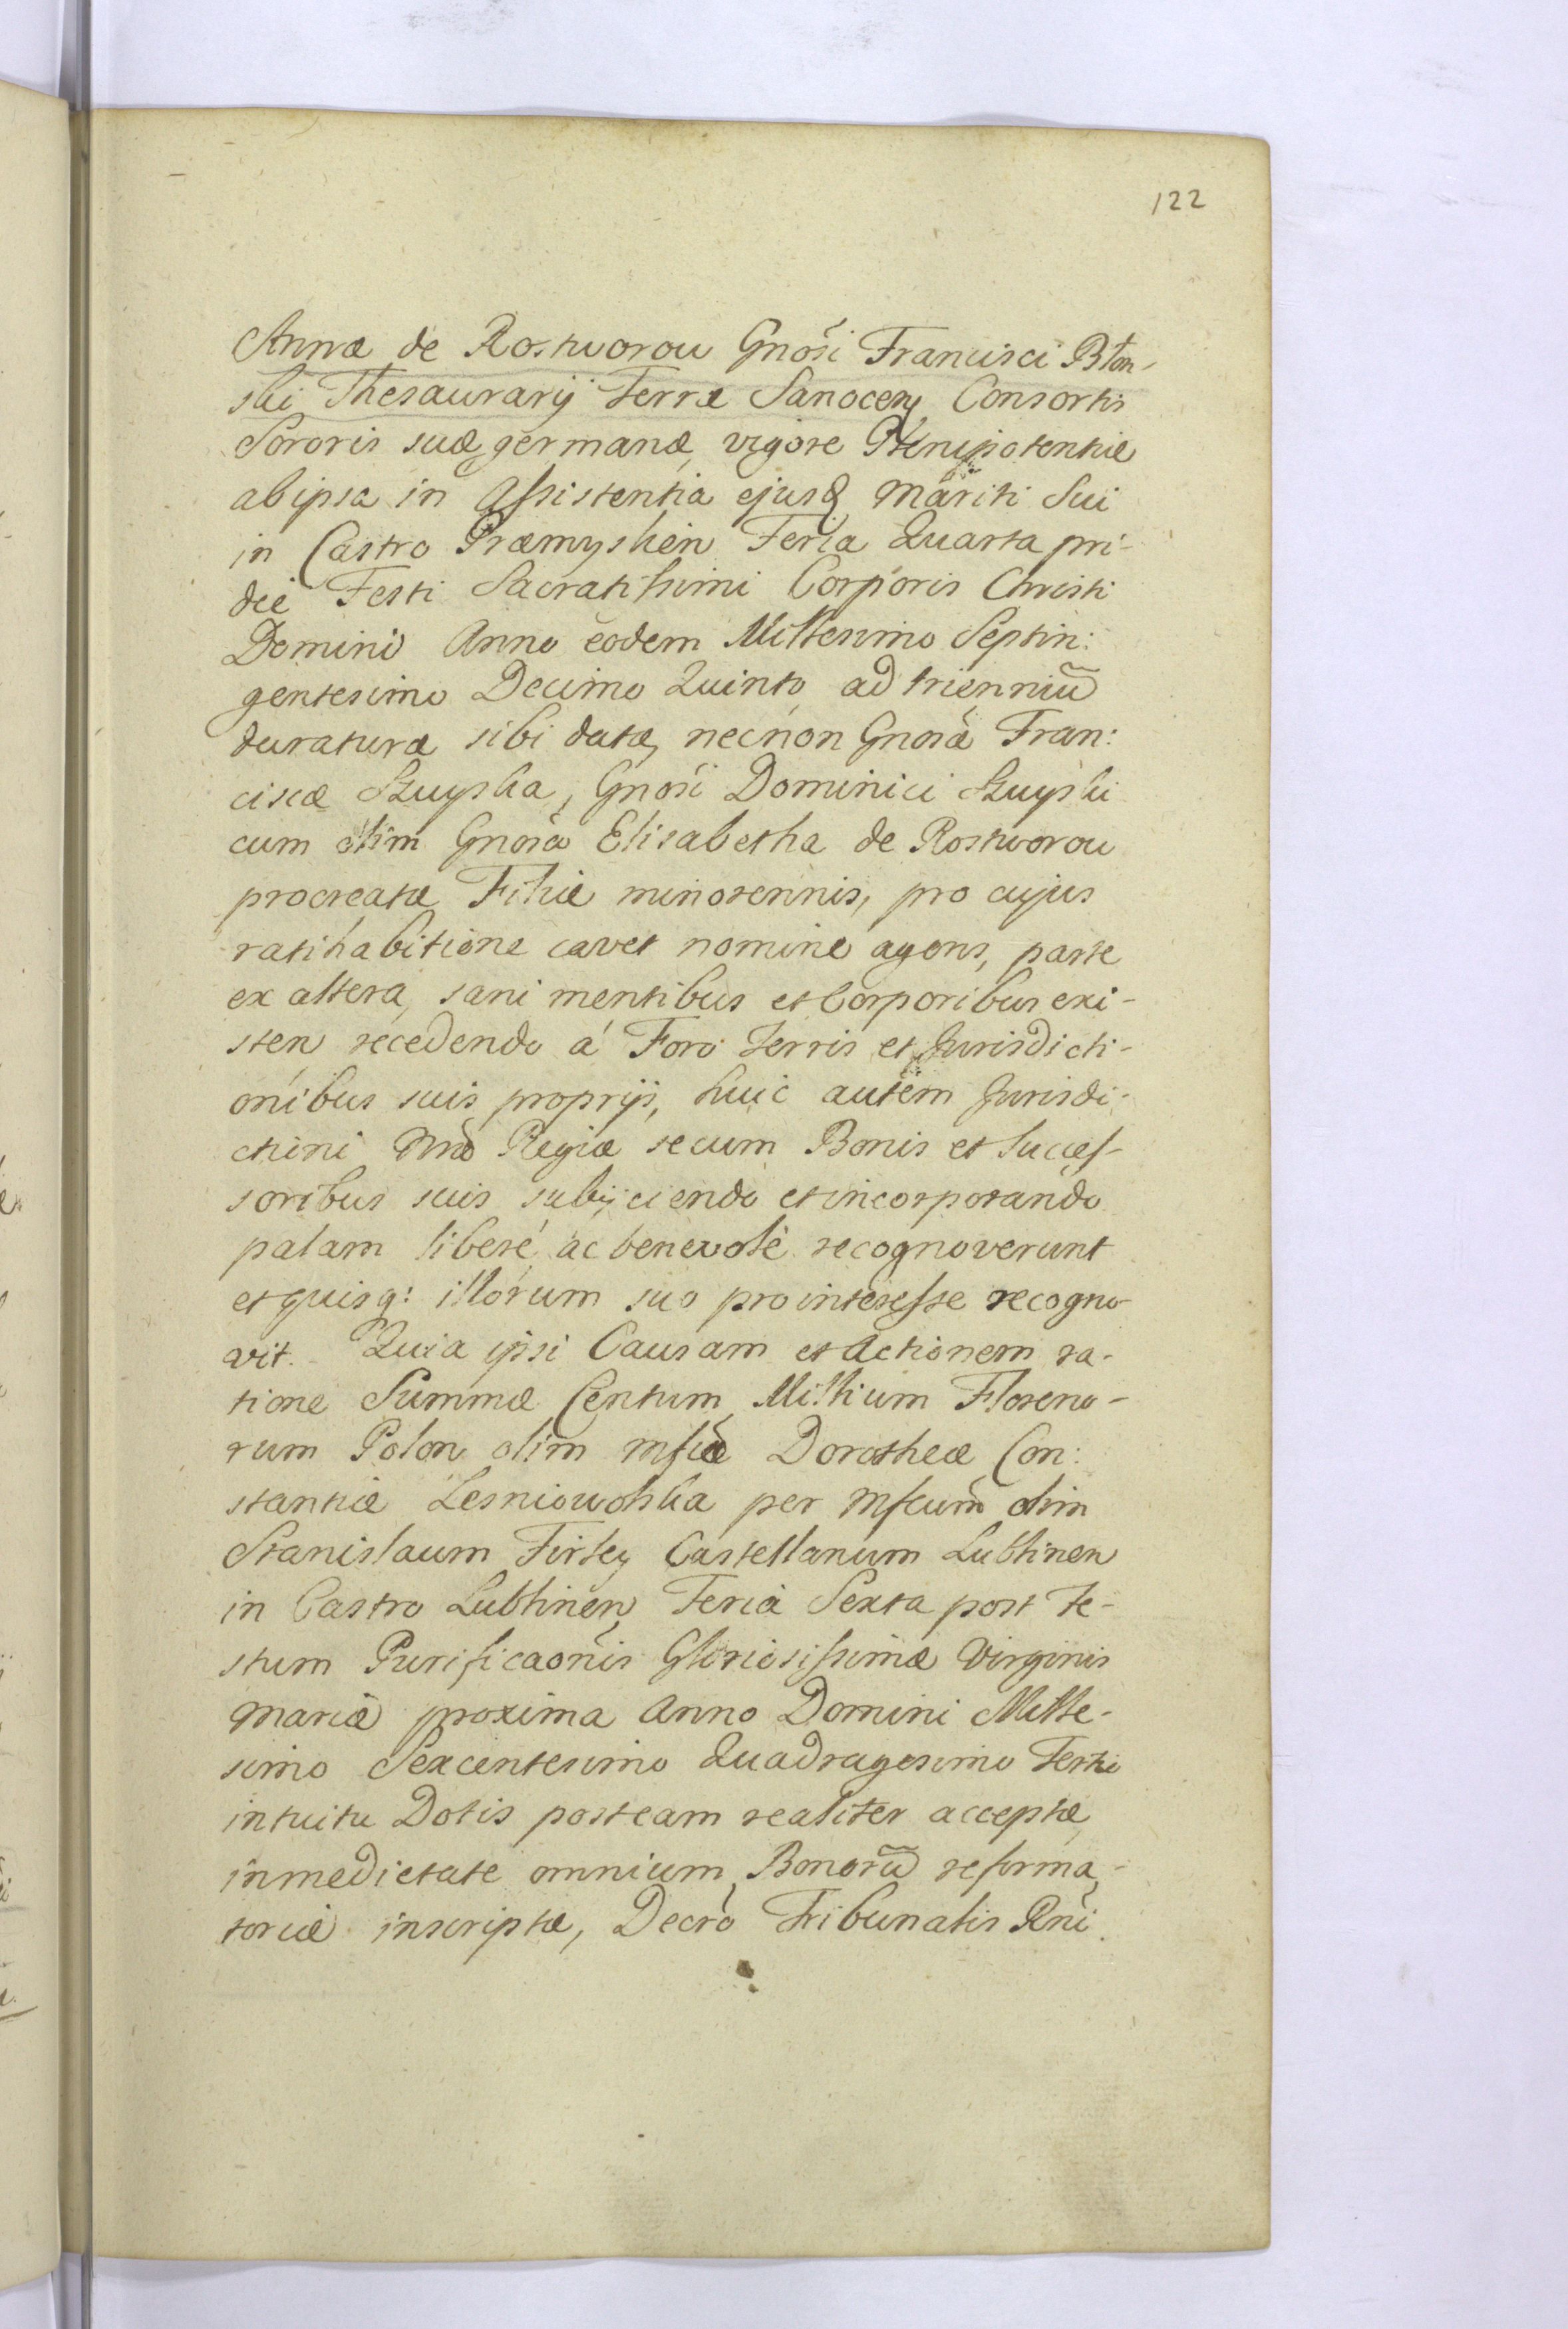 122
Annæ de Rostworow Gnōsi Francisci Błon-
ski Thesaurarij Terræ Sanocen Consortis
Sororis suæ germanæ, vigore Plenipotentiæ
ab ipsa in Assistentia ejusd Mariti Sui
in Castro Præmyslien Feria Quarta pri-
die Festi Sacratissimi Corporis Christi
Domini Anno eodem Millesimo Septin:
gentesimo Decimo Quinto, ad trienniũ
duraturæ sibi datæ, necnon Gnōsæ Fran:
ciscæ Szuyska, Gnōsi Dominici Szuyski
cum olim Gnōsa Elisabetha de Rostworow
procreatæ Filiæ minorennis, pro cujus
ratihabitione cavet nomine agens, parte
ex altera, sani mentibus et Corporibus exi-
sten recedendo á Foro Terris et Jurisdicti-
onibus suis proprijs, huic autem Jurisdi-
ctioni Regiæ se cum Bonis et Succes-
soribus suis subijciendo et incorporando
palam liberé ac benevolè recognoverunt
et quisq: illorum suo pro interesse recogno-
vit. Quia ipsi Causam et Actionem ra-
tione Summæ Centum Millium Floreno-
rum Polon olim Mfcæ Dorotheæ Con:
stantiæ Lesniowolska per Mfcum olim
Stanislaum Firley Castellanum Lublinen
in Castro Lublinen, Feria Sexta post Fe-
stum Purificaōnis Gloriosissimæ Virginis
Mariæ proxima Anno Domini Mille-
simo Sexcentesimo Quadragesimo Tertio
intuitu Dotis post eam realiter acceptæ,
in medietate omnium Bonorũ reforma-
toriæ inscriptæ, Decrō Tribunalis Rni